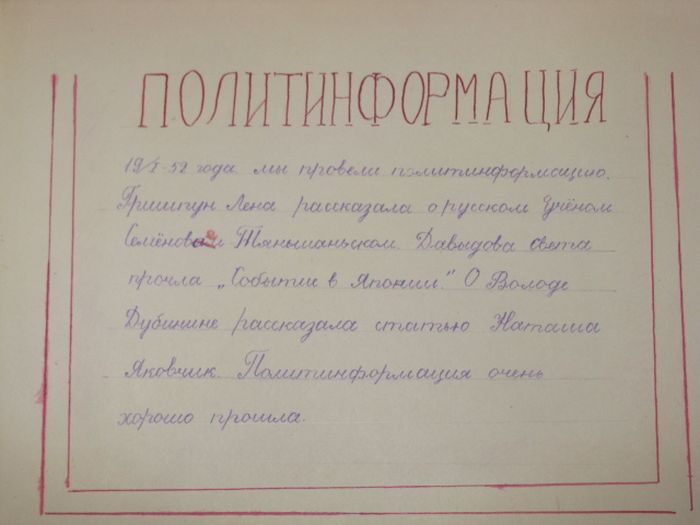 ПОЛИТИНФОРМАЦИЯ
19/I-52 года мы провели политинформацию.
Гришпун Лена рассказала о русском Учёном
Семёнове Тяньшаньском. Давыдова света
прочла „События в Японии." О Володе
Дубинине рассказала статью Наташа
Яковчик. Политинформация очень
хорошо прошла.